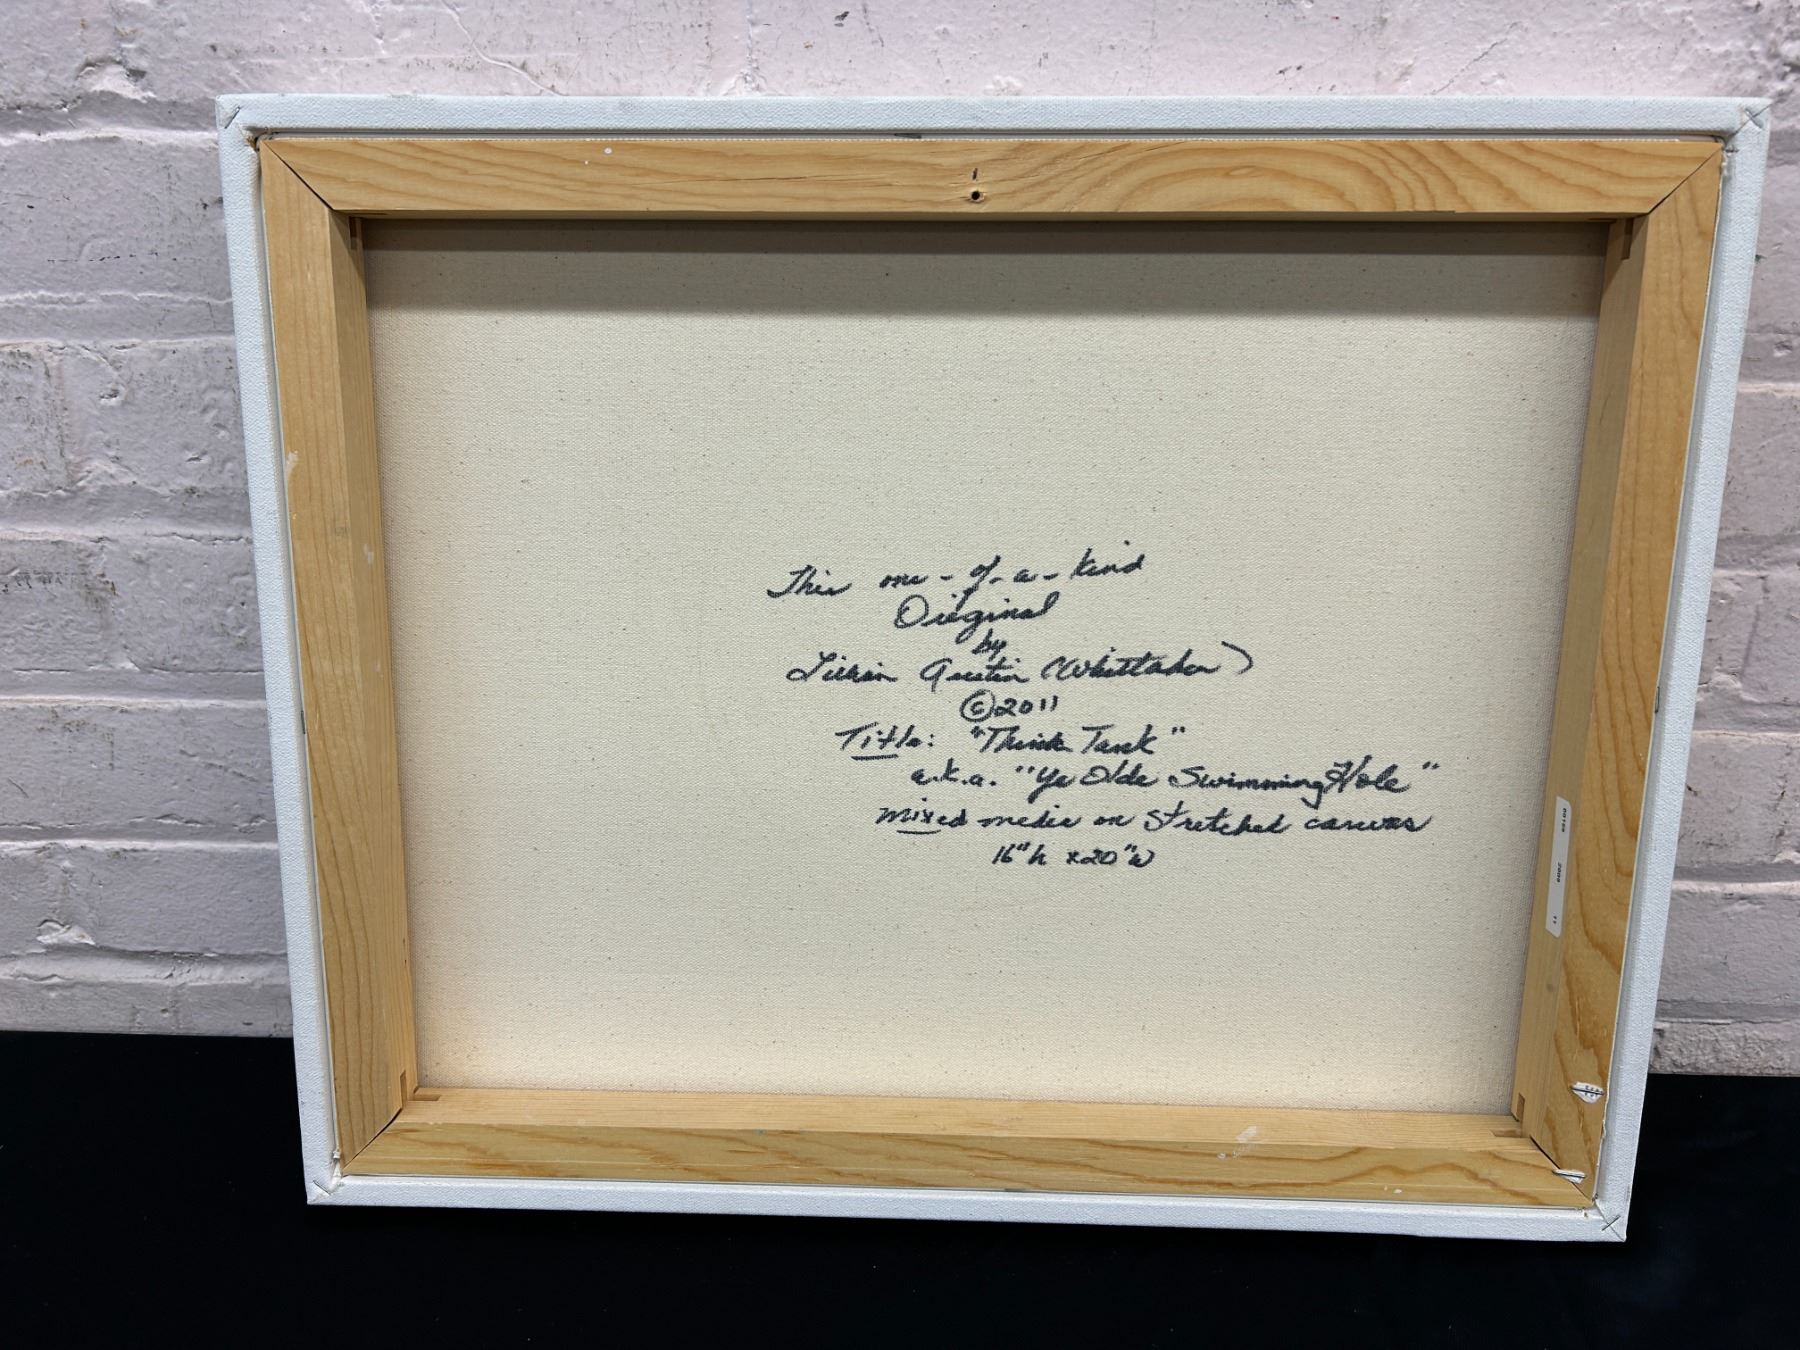 This one-of-a-kind
Original
by
Lillian Austin (Whittaker)
©2011
Title: "Think Tank"
a.k.a. "Ye Olde Swimming Hole"
mixed media on stretched canvas
16"h x 20"w